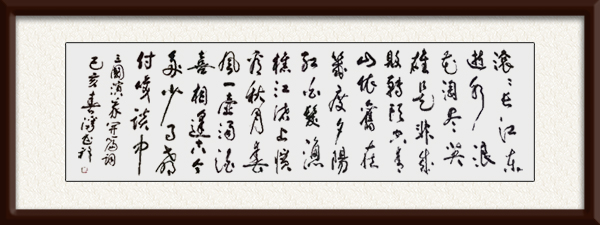 滾〻长江东
逝水浪
花淘尽英
雄是非成
敗转头空青
山依舊在
幾度夕陽
红白髮渔
樵江渚上惯
看秋月春
風一壶浊酒
喜相逢古今
多少事都
付笑谈中
三國演义开篇词
己亥春